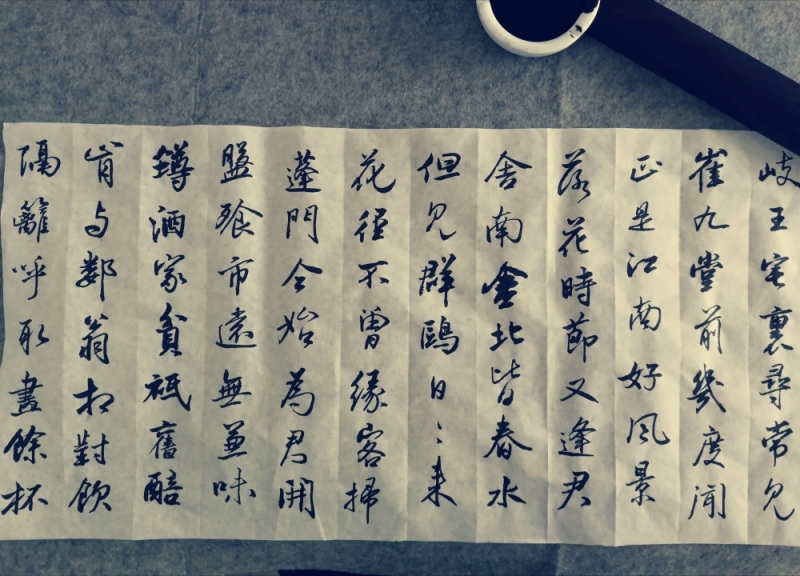 岐王宅裏尋常見
崔九堂前幾度聞
正是江南好風景
落花時節又逢君
舍南舍北皆春水
但見群鷗日〻來
花徑不曾緣客掃
蓬門今始為君開
盤飱市遠無兼味
樽酒家貧祇舊醅
肯与鄰翁相對飲
隔籬呼取盡餘杯